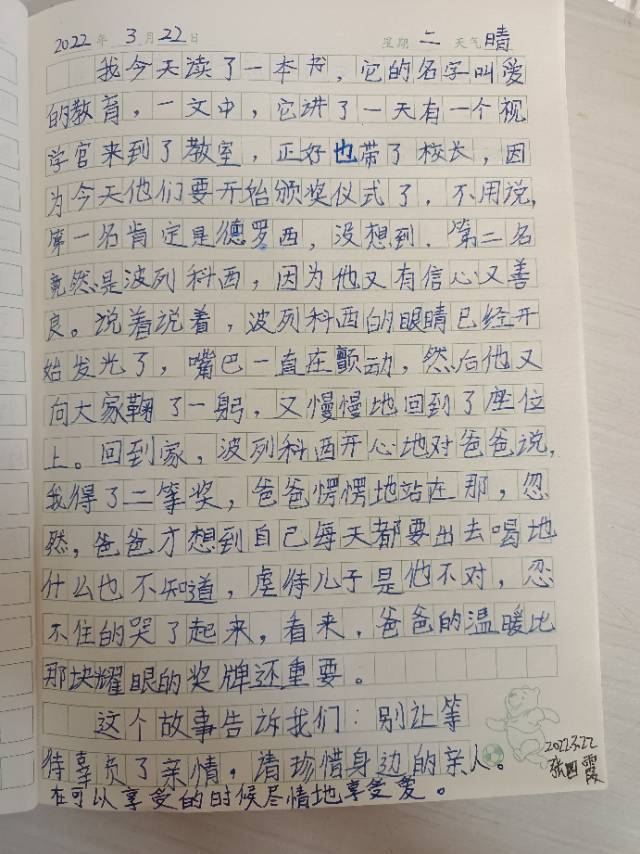 2022年3月22日 星期二 天气晴
我今天读了一本书，它的名字叫爱
的教育，一文中，它讲了一天有一个视
学官来到了教室，正好也带了校长，因
为今天他们要开始颁奖仪式了，不用说，
第一名肯定是德罗西，没想到，第二名
竟然是波列科西，因为他又有信心又善
良。说着说着，波列科西的眼睛已经开
始发光了，嘴巴一直在颤动，然后他又
向大家鞠了一躬，又慢慢地回到了座位
上。回到家，波列科西开心地对爸爸说，
我得了二等奖，爸爸愣愣地站在那，忽
然，爸爸才想到自己每天都要出去喝地
什么也不知道，虐待儿子是他不对，忍
不住的哭了起来，看来，爸爸的温暖比
那块耀眼的奖牌还重要。
这个故事告诉我们：别让等
待辜负了亲情，请珍惜身边的亲人。
在可以享受的时候尽情地享受爱。
2022.3.22
张
霞